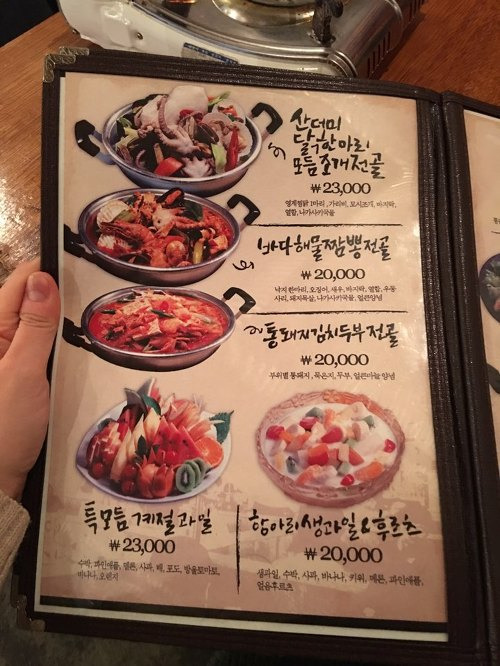 산더미
닭 한마리
모듬조개전골
₩23,000
영계찜닭 1마리, 가리비, 모시조개, 바지락,
열합, 나가사키국물
바다해물짬뽕전골
₩20,000
낙지 한마리, 오징어, 새우, 바지락, 열합, 우동
사리, 돼지목살, 나가사키국물, 얼큰양념
통돼지김치두부전골
₩20,000
부위별 통돼지, 묵은지, 두부, 얼큰마늘 양념
특모듬 계절과일
₩23,000
수박, 파인애플, 멜론, 사과, 배, 포도, 방울토마토,
바나나, 오렌지
항아리생과일&후르츠
₩20,000
생과일, 수박, 사과, 바나나, 키위, 메론, 파인애플,
얼음후르츠